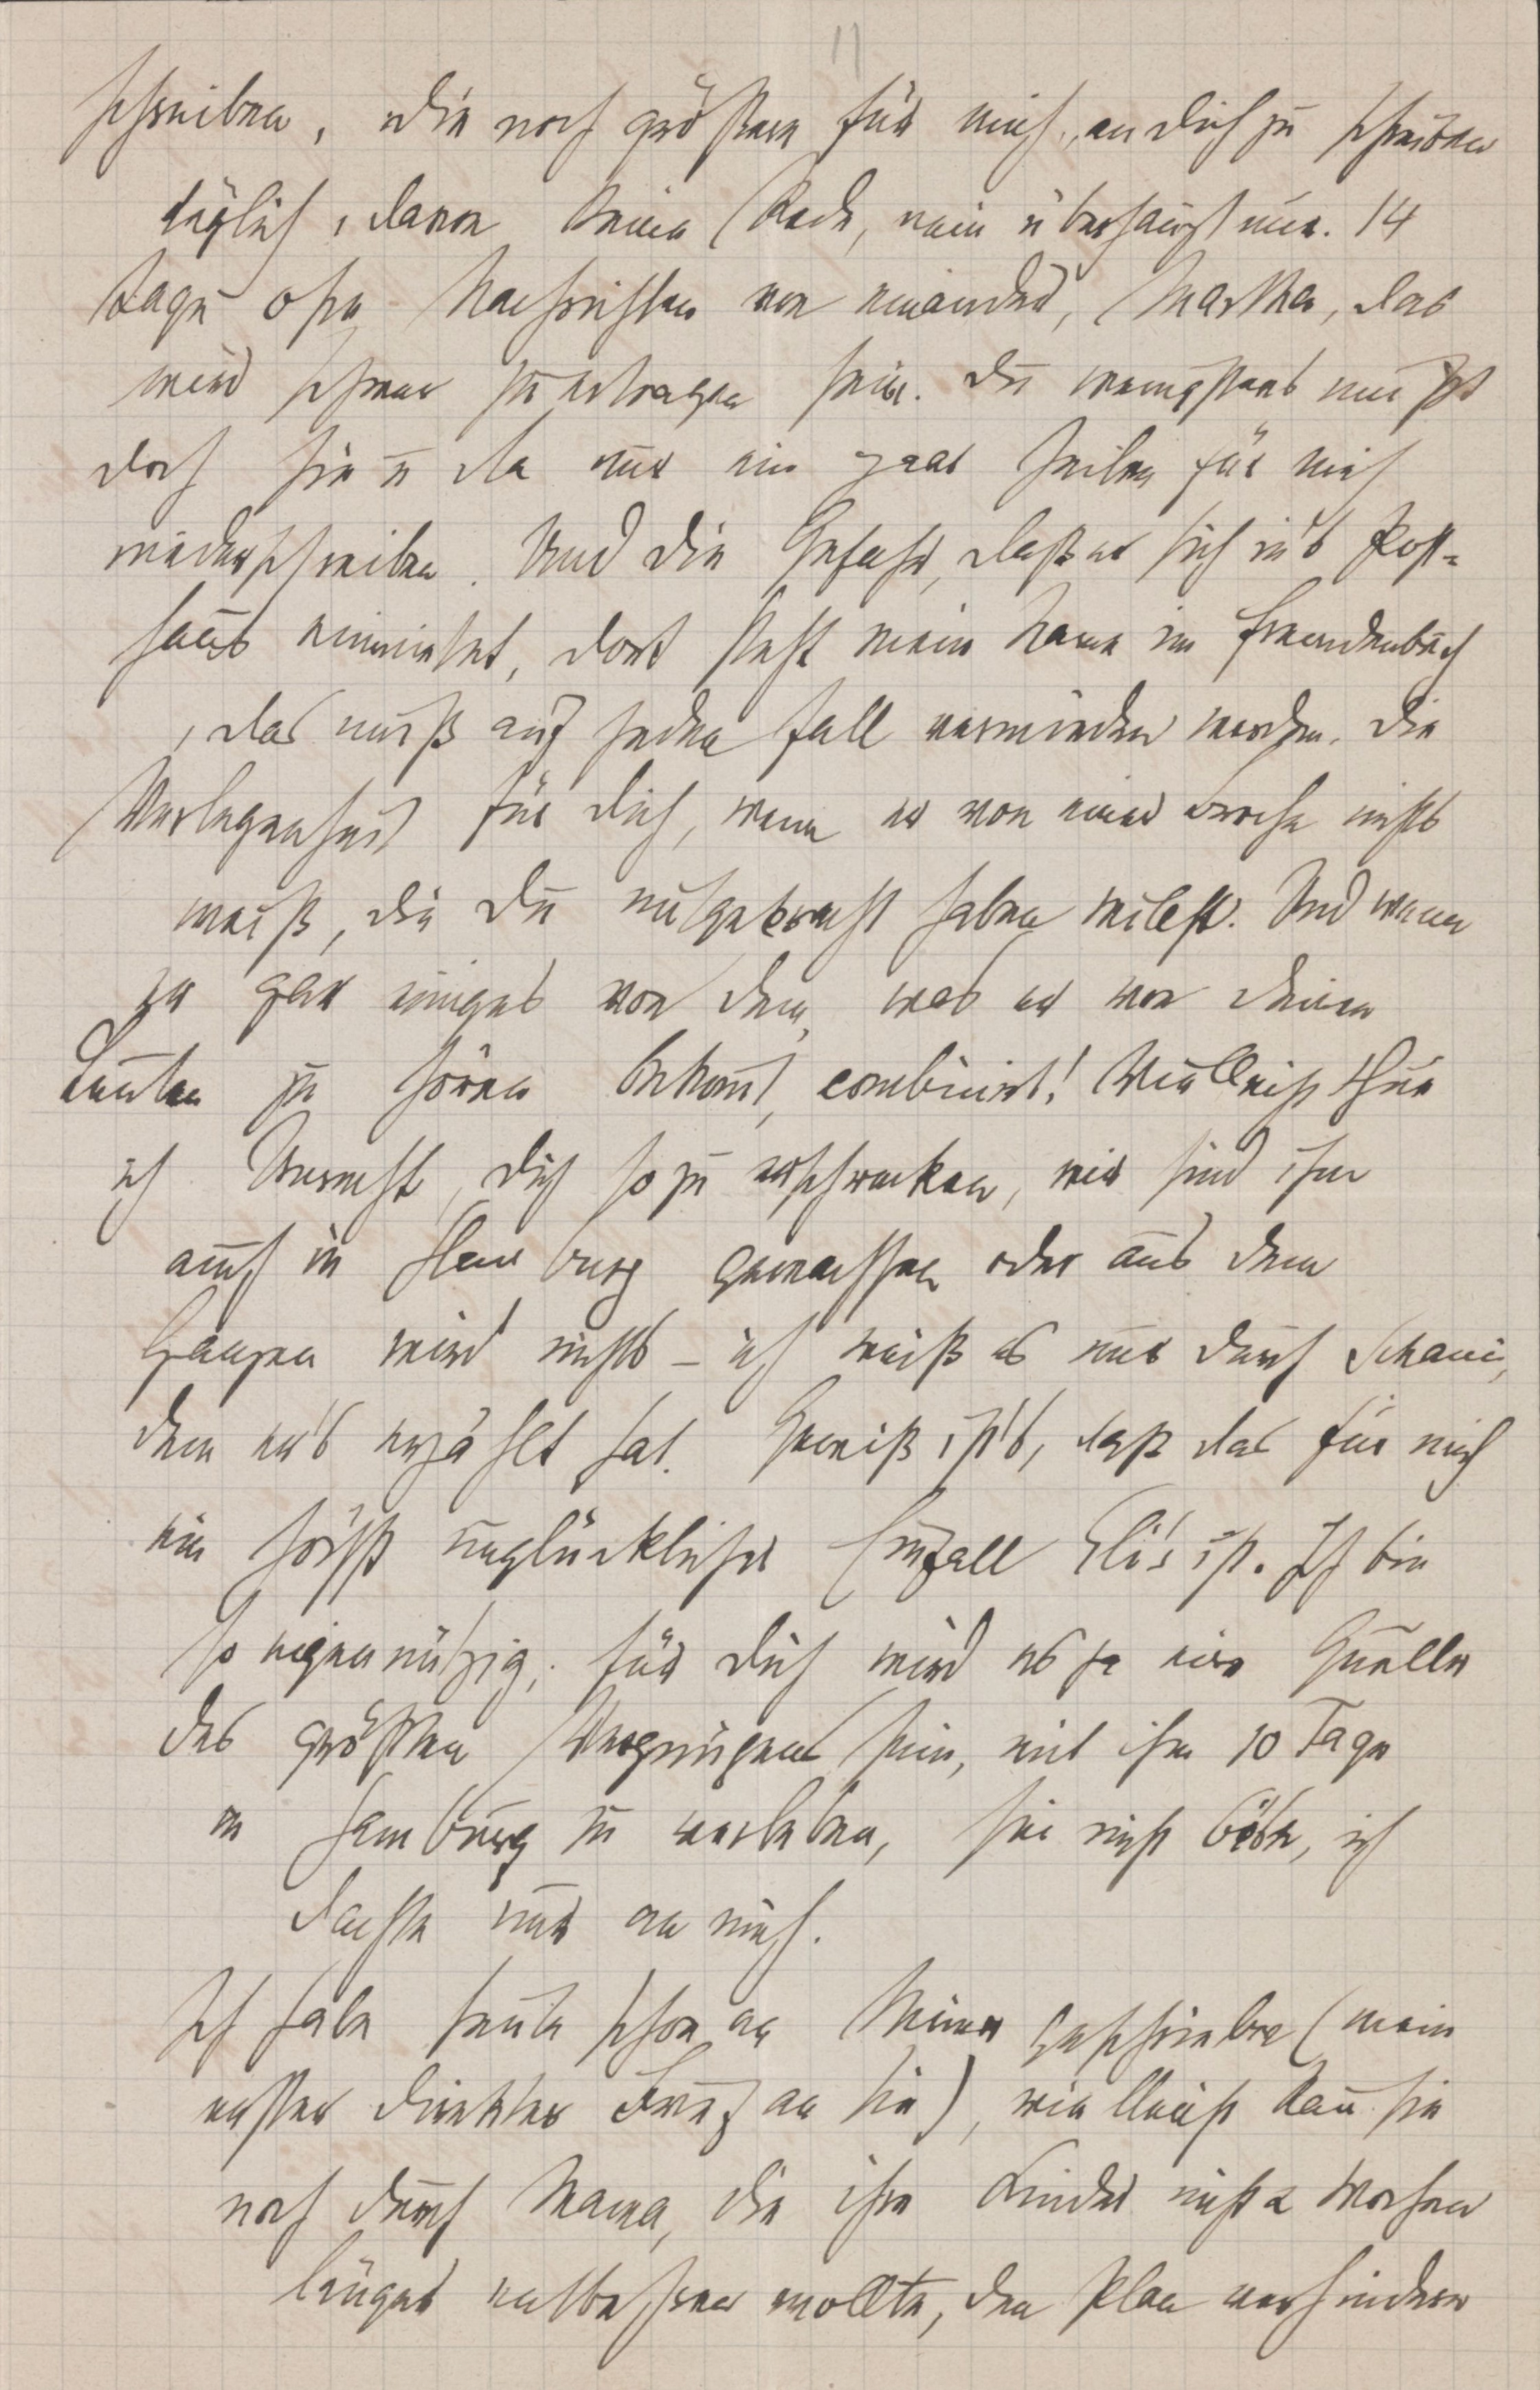 11
schreiben, die noch größere für mich, an Dich zu schreiben
täglich, davon keine Rede, nein überhaupt nur. 14
Tage ohne Nachrichten von einander, Martha, das
wird schwer zu ertragen sein. Du wenigstens mußt
doch hie u da nur ein paar Zeilen für mich
niederschreiben. Und die Gefahr, daß er sich in's Post-
haus einmietet, dort steht mein Name im Fremdenbuch
, das muß auf jeden Fall vermieden werden. Die
Verlegenheit für Dich, wenn er von einer Broche nichts
weiß, die Du mitgebracht haben willst. Und wenn
er gar einiges von dem, was er von deinen
Leuten zu hören bekomt, combinirt! Vielleicht thue
ich Unrecht, Dich so zu erschrecken, wir sind ihm
auch in Hamburg gewachsen oder aus dem
Ganzen wird nichts – ich weiß es nur durch Schani,
dem er's erzählt hat. Gewiß ist's, daß das für mich
ein höchst unglücklicher Einfall Eli's ist. Ich bin
so eigennützig; für Dich wird es ja eine Quelle
des größten Vergnügens sein, mit ihm 10 Tage
in Hamburg zu verleben, sei nicht böse, ich
dachte nur an mich.
Ich habe heute schon an Minna geschrieben (mein
erster direkter Brief an sie), vielleicht kann sie
noch durch Mama, die ihre Kinder nicht 2 Wochen
länger entbehren wollte, den Plan verhindern